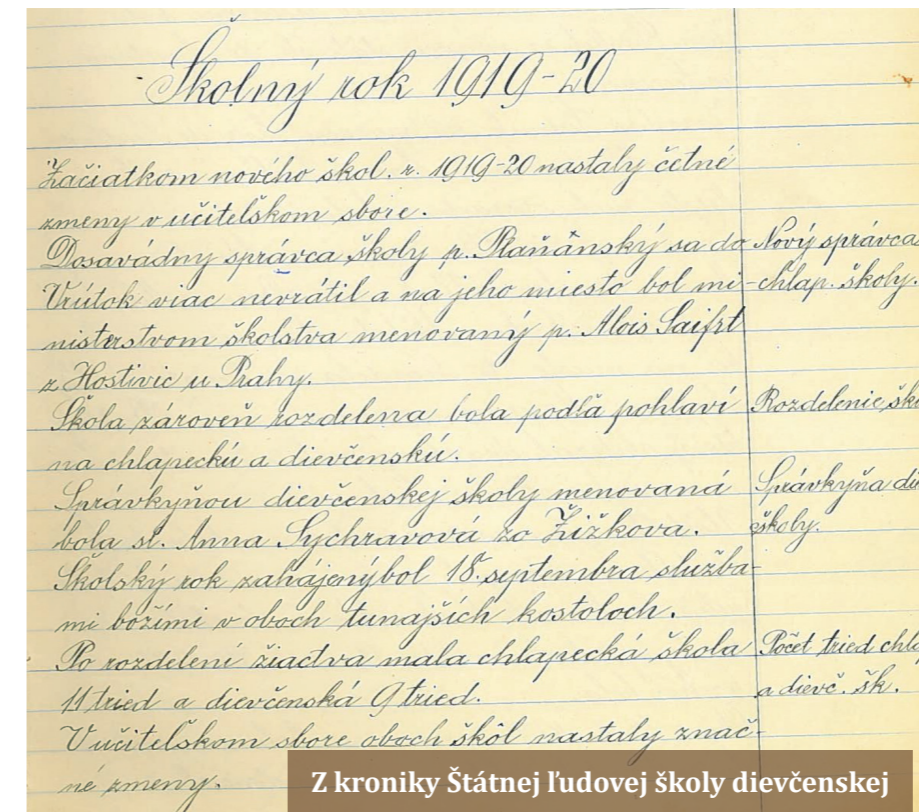 Školný rok 1919-20
Začiatkom nového škol. r. 1919-20 nastaly četné
zmeny v učitelškom sbore.
Dosavádny správca školy p. Plaňánský sa do
Vrútok viac nevrátil a na jeho miesto bol mi-
nisterstvom školstva menovaný p. Alois Saifrt
z Hostivic u Prahy.
Škola zároveň rozdelena bola podľa pohlaví
na chlapeckú a dievčenskú.
Správkyňou dievčenskej školy menovaná
bola sl. Anna Sychravová zo Žižkova.
Školský rok zahájený bol 18. septembra služba-
mi božími v oboch tunajších kostoloch.
Po rozdelení žiactva mala chlapecká škola
11 tried a dievčenská 9 tried.
V učitelskom sbore oboch škôl nastaly znač-
né zmeny.
Nový správca
chlap. školy.
Rozdelenie ško
Správkyňa di
školy.
Počet tried chla
a dievč. šk.
Z kroniky Štátnej ľudovej školy dievčenskej